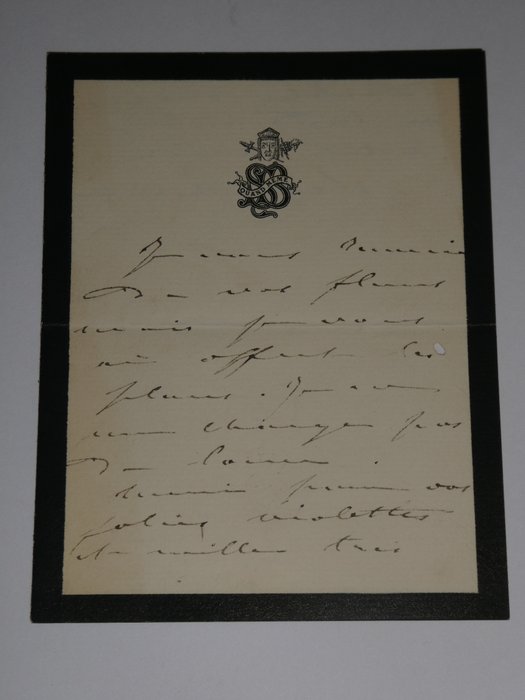 QUAND MÊME
Je vous remercie
De vos fleurs
mais je vous
ai offert les
fleurs. Je
ne change pas
De
merci pour vos
jolies violettes
et veuillez très